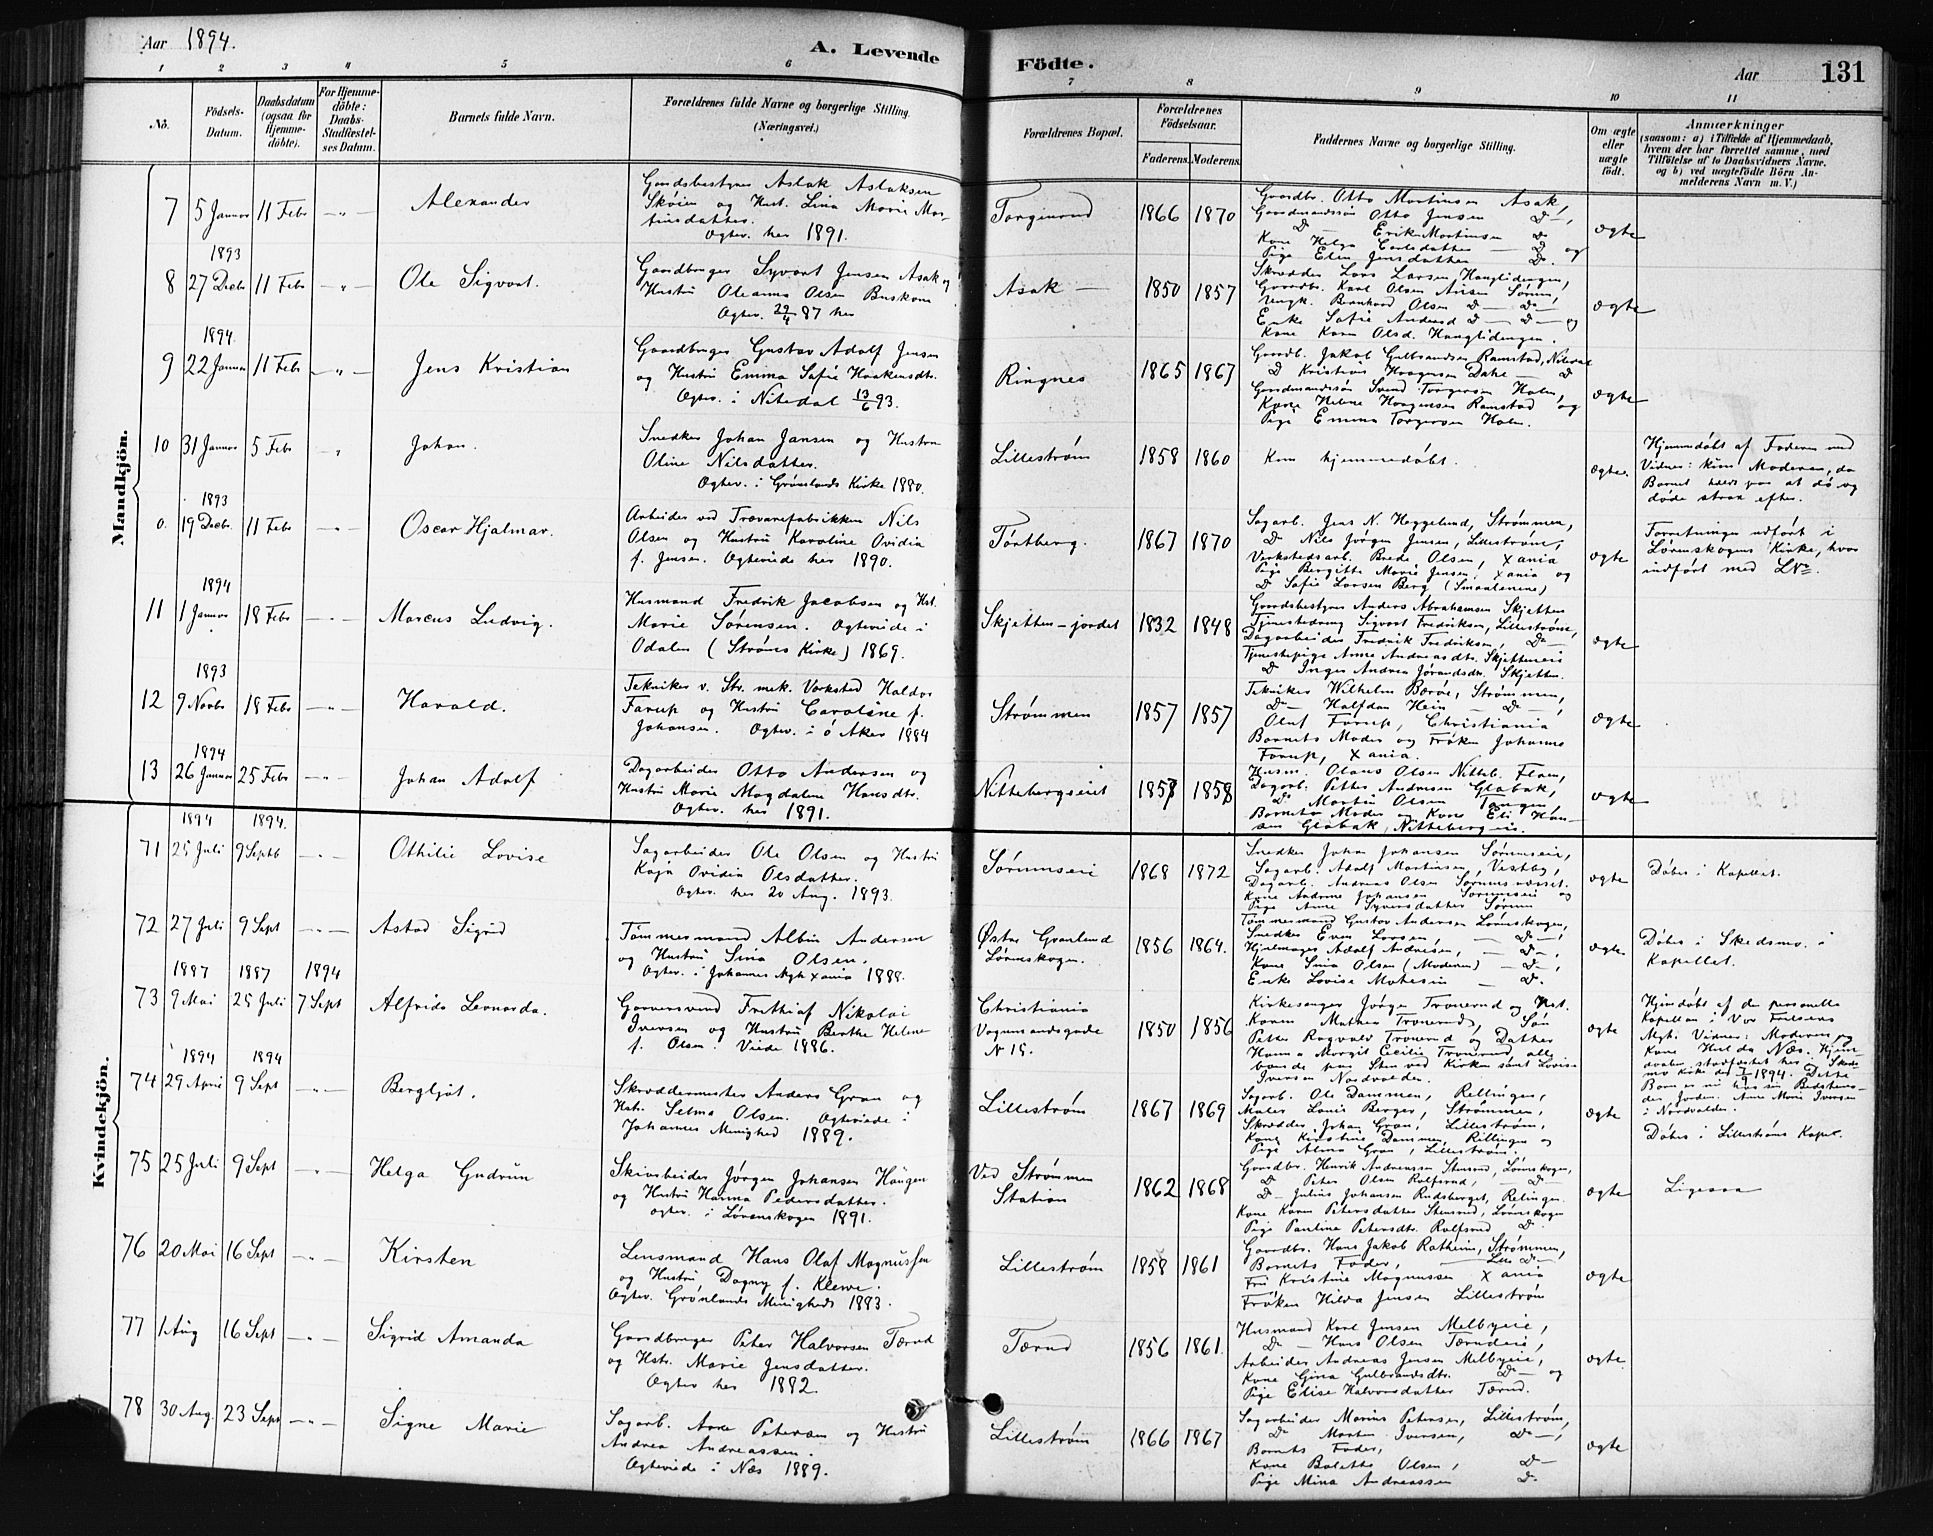 Aar 1894.
A. Levende
Födte.
Aar
131
1 2 3 4 5 6 7 8 9 10 11
No.
Födsels-
Datum.
Daabsdatum
(ogsaa for
Hjemme-
döbte).
For Hjemme-
döbte:
Daabs-
Stadfæstel-
ses Datum.
Barnets fulde Navn.
Forældrenes fulde Navne og borgerlige Stilling.
(Næringsvei.)
Forældrenes Bopæl.
Forældrenes
Födselsaar.
Faderens. Moderens.
Faddernes Navne og borgerlige Stilling.
Om ægte
eller
uægte
födt.
Anmærkninger
(saasom: a) i Tilfælde af Hjemmedaab,
hvem der har forrettet samme, med
Tilföielse af to Daabsvidners Navne,
og b) ved uægtefödte Börn An-
melderens Navn m. V.)
Mandkjön.
7 5 Januar 11 Febr — " — Alexander
Gaardsbestyrer Aslak Aslaksen
Skøien og Hust. Lina Marie Mar-
tinsdatter.
Ægtev. her 1891.
1866 1870
Gaardbr. Otto Martinsen Asak,
Gaardmandssøn Otto Jensen D —,
D — Erik Martinsen D
Kone Helga Carlsdatter — D og
Pige Elin Jensdatter — D.
ægte
1893
8 27 Decbr 11 Febr — " — Ole Sigvart.
Gaardbruger Syvert Jensen Asak og
Hustru Oleanna Olsen Buskom
Ægtev. 29/4 87 her
Asak —
1850 1857
Skrædder Lars Larsen, Hauglidengen,
Gaardbr. Karl Olsen Sørum,
Ungk. Bernhard Olsen D — D —,
Enke Sofie Anders D — D — og
Kone Karen Olsd. Hauglidengen.
ægte
1894
9 22 Januar 11 Febr — " — Jens Kristian
Gaardbruger Gustav Adolf Jensen
og Hustru Emma Sofie Haakensdtr.
Ægtev. i Nitedal 13/6 93.
Ringnes
1865 1867
Gaardb. Jakob Gulbrandsen Ramstad, Nitedal
D Kristian Haagensen Dahl — D
Gaardmandssøn Svend Torgersen Holm,
Kone Helene Haagensen Ramstad og
Pige Emma Torgersen Holm.
ægte
10 31 Januar 5 Febr — " Johan.
Snedker Johan Jansen og Hustru
Oline Nilsdatter.
Ægtev. i Grønlands Kirke 1880.
Lillestrøm
1858 1860
Kun hjemmedøbt.
ægte.
Hjemmedøbt af Faderen med
Vidner: kun Moderen, da
Barnet holdt paa at dø og
døde strax efter.
1893
0. 19 Decbr. 11 Febr — " — Oscar Hjalmar.
Arbeider ved Trævarefabrikken Nils
Olsen og Hustru Karoline Ovidia
f. Jensen. Ægteviede her 1890.
Tørtberg.
1867 1870
Sagarb. Jens N. Heggelund, Strømmen,
D. Nils Jørgen Jensen, Lillestrøm,
Værkstedsarb. Brede Olsen, Xania
Pige Bergitte Marie Jensen, Xania og
D Sofie Larsen Berg (Smaalenene)
ægte
Forretningen udført i
Lørenskogens Kirke, hvor
indført med L№.
1894
11 1 Januar 18 Febr — " — Marcus Ludvig.
Husmand Fredrik Jacobsen og Hst.
Marie Sørensen. Ægteviede i
Odalen (Strøms Kirke) 1869.
Skjetten-jordet
1832 1848
Gaardsbestyrer Anders Abrahamsen Skjetten
Tjenestedreng Sigvart Fredriksen, Lillestrøm,
Dagarbeider Fredrik Fredriksen, D —
Tjenestepige Anne Andreasdtr. Skjetteneie
D Inger Andrea Jørandsdtr. Skjetten.
ægte
1893
12 9 Novbr 18 Febr — " — Harald.
Tekniker v. Str. mek. Værksted Haldor
Farup og Hustru Caroline f.
Johansen. Ægtev. i Ø Aker 1884
Strømmen
1857 1857
Tekniker Wilhelm Barøe, Strømmen,
D — Halfdan Hein — D —,
Oluf Farup, Christiania
Barnets Moder og Frøken Johanne
Farup, Xania.
ægte
1894
13 26 Januar 25 Febr — " — Johan Adolf
Dagarbeider Otto Andersen og
Hustru Marie Magdalene Hansdtr.
Ægtev. her 1891.
Nittebergseiet
1857 1858
Husm. Olaus Olsen Nitteb. Flaen,
Dagarb. Petter Andresen Glabak,
D Martin Olsen Tangen,
Barnets Moder og Kone Eli Han-
sen Glabak, Nittebergeie.
ægte
Kvindekjön.
1894 1894.
71 25 Juli 9 Septb — " — Othilie Lovise
Sagarbeider Ole Olsen og Hustru
Kaja Ovidia Olsdatter.
Ægtev. her 20 Aug. 1893.
Sørumseie
1868 1872
Snedker Johan Johansen Sørumseie,
Sagarb. Adolf Martinsen, Vestby,
Dagarb. Andreas Olsen
Kone Andrine Johansen Sørumseie og
Pige Anne Syversdatter Sørum
ægte
Døbt i Kapellet.
72 27 Juli 9 Sept — " — Astad Sigrid
Tømmermand Albin Andersen
og Hustru Sina Olsen.
Ægtev. i Johannes Mgh Xania 1888.
Østre Granlund
Lørenskogen.
1856 1864.
Tømmermand Gustav Andersen Lørenskogen,
Snedker Even Larsen — D —,
Hjulmager Adolf Andreasen, — D —,
Kone Sina Olsen (Moderen) — D —,
Enke Lovise Mathisen — D.
ægte
Døbt i Skedsmo i
Kapellet.
1887 1887 1894
73 9 Mai 25 Juli 7 Sept Alfrida Leonarda.
Garversvend Frithiof Nikolai
Iversen og Hustru Berthe Helene
f. Olsen. Viede 1886.
Christiania
Vognmandsgade
N 15.
1850 1856
Kirkesanger Jørgen Tronerud og Hst.
Karen Mathea Tronerud, Søn
Petter Ragvald Tronerud og Datter
Hanna Margit Cecilie Tronerud alle
boende paa Sten ved Kirken samt Lovise
Iversen Nordvolden.
ægte
Hjemdøbt af den personelle
Kapellan i Vor Frelsers
Mgh. Vidner: Moderen og
Kone Hulda Næs. Hjem-
daaben stadfæstet her i Skeds-
mo Kirke den 7/9 1894. Dette
Barn er nu hos sin Bedstemo-
der, Jorden. Anne Marie Iversen
i Nordvolden.
1894 1894
74 29 April 9 Sept — " — Bergljot.
Skræddermester Anders Gran og
Hst. Selma Olsen. Ægteviede i
Johannes Menighed 1889.
Lillestrøm
1867 1869
Sagarb. Ole Dammen, Rellingen,
Maler Louis Berger, Strømmen,
Skrædder Johan Gran, Lillestrøm,
Kone Kirstine Dammen, Rillingen og
Pige Alma Gran, Lillestrøm.
ægte
Døbt i Lillestrøms Kapel.
75 25 Juli 9 Sept — " — Helga Gudrun
Skivarbeider Jørgen Johansen Haugen
og Hustru Hanna Pedersdatter.
Ægtev. i Lørenskogen 1891.
Ved Strømmen
Station
1862 1868
Gaardbr. Henrik Andreassen Stensrud, Lørenskogen,
D Peter Olsen Rolfsrud, — D —
D — Julius Johansen Rudsberget, Relingen
Kone Karen Petersdatter Stensrud, Lørenskogen
Pige Pauline Petersdtr. Rolfsrud D.
ægte
Ligesaa
76 20 Mai 16 Sept — " — Kirsten
Lensmand Hans Olaf Magnussen
og Hustru Dagny f. Klewe.
Ægtev. Grønlands Menigheds 1883.
Lillestrøm
1858 1861
Gaardbr. Hans Jakob Ratheim, Strømmen,
Barnets Fader,
Fru Kristine Magnussen Xania
Frøken Hilda Jensen Lillestrøm
ægte
77 1 Aug 16 Sept — " — Sigrid Amanda
Gaardbruger Peter Halvorsen Tærud
og Hstr. Marie Jensdatter.
Ægtev her 1882.
Tærud
1856 1861.
Husmand Karl Jensen Melbyeie,
D — Hans Olsen Tærudeie,
Arbeider Andreas Jensen Melbyeie,
Kone Gina Gulbrandsdtr. D — og
Pige Elise Halvorsdatter Tærud.
ægte
78 30 Aug. 23 Sept — " — Signe Marie
Sagarb. Arne Petersen og Hustru
Andrea Andreassen.
Ægteviede i Næs 1889.
Lillestrøm
1866 1867
Sagarbeider Marius Petersen, Lillestrøm,
D Morten Iversen, D —,
Barnets Fader,
Kone Bolette Olsen, D —
Pige Mina Andreassen D.
ægte